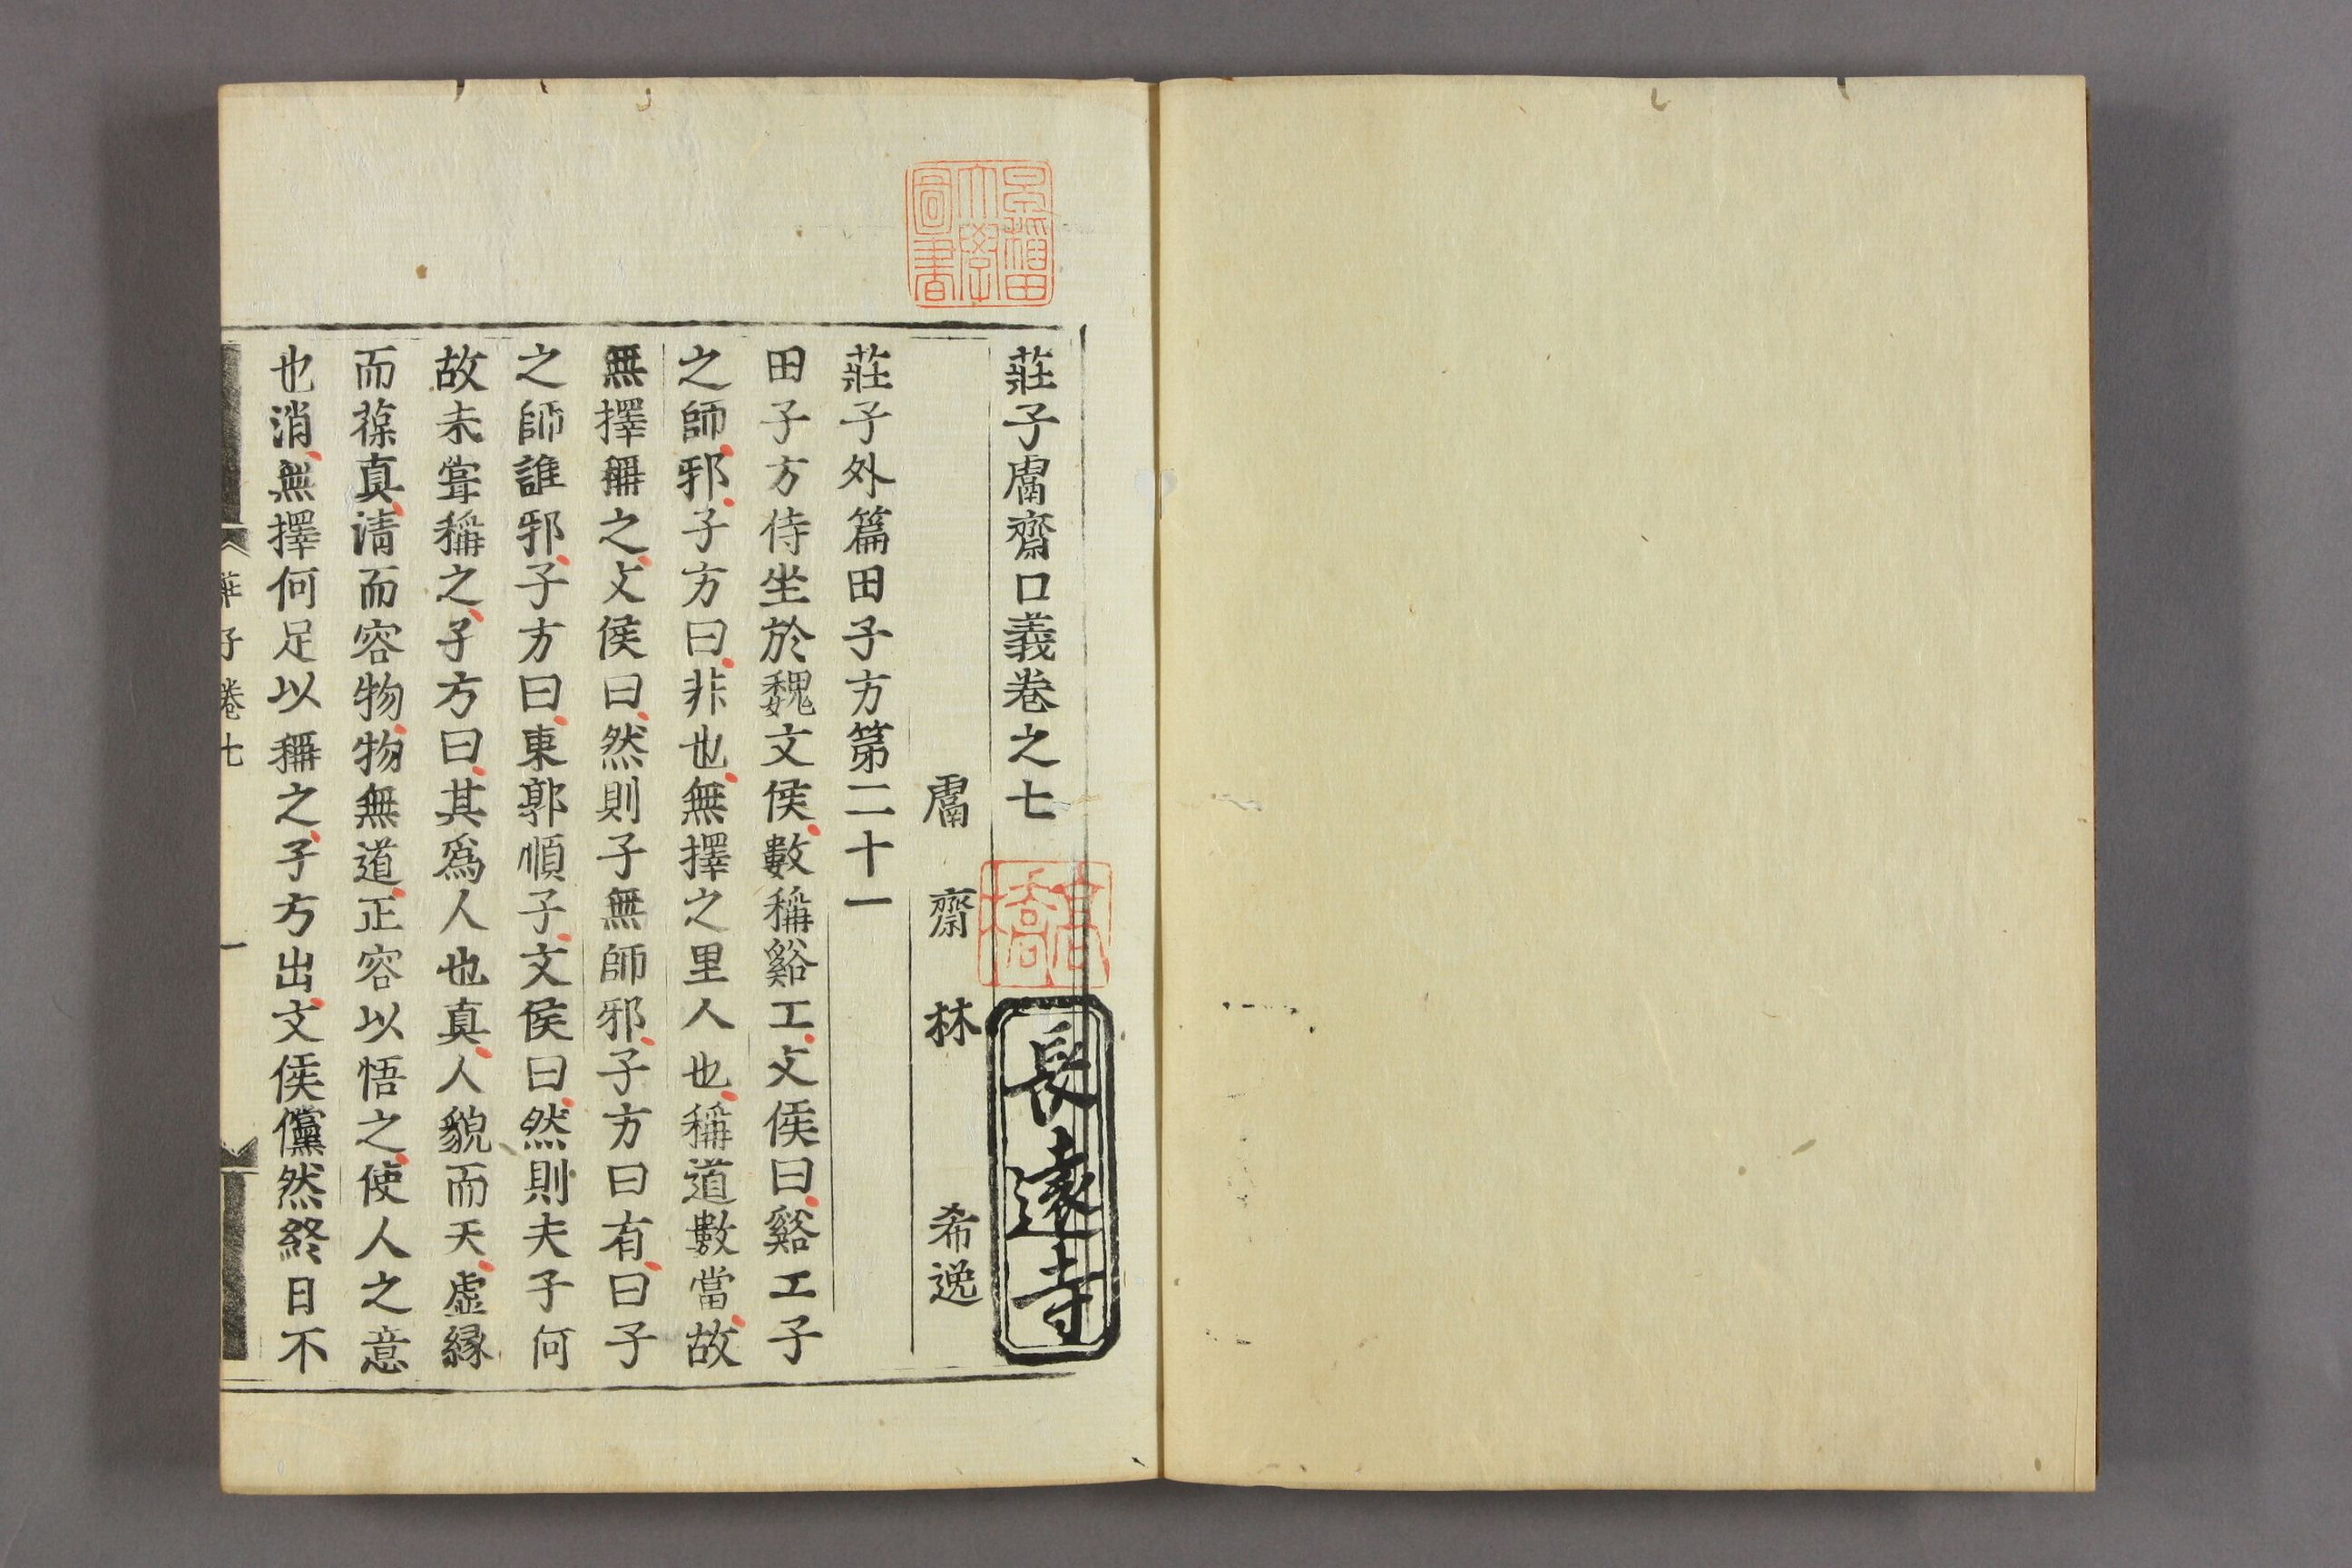 莊子鬳齋口義卷之七
鬳齋林希逸
莊子外篇田子方第二十一
田子方侍坐於魏文侯數稱谿工文侯曰谿工子
之師邪子方曰非也無擇之里人也稱道數當故
無擇稱之文侯曰然則子無師邪子方曰有曰子
之師誰邪子方曰東郭順子文侯曰然則夫子何
故未甞稱之子方曰其爲人也真人貌而天虛縁
而葆真清而容物物無道正容以悟之使人之意
也消無擇何足以稱之子方出文侯儻然終日不
莊子卷七
一
長遠寺
高橋
早稲田大學圖書